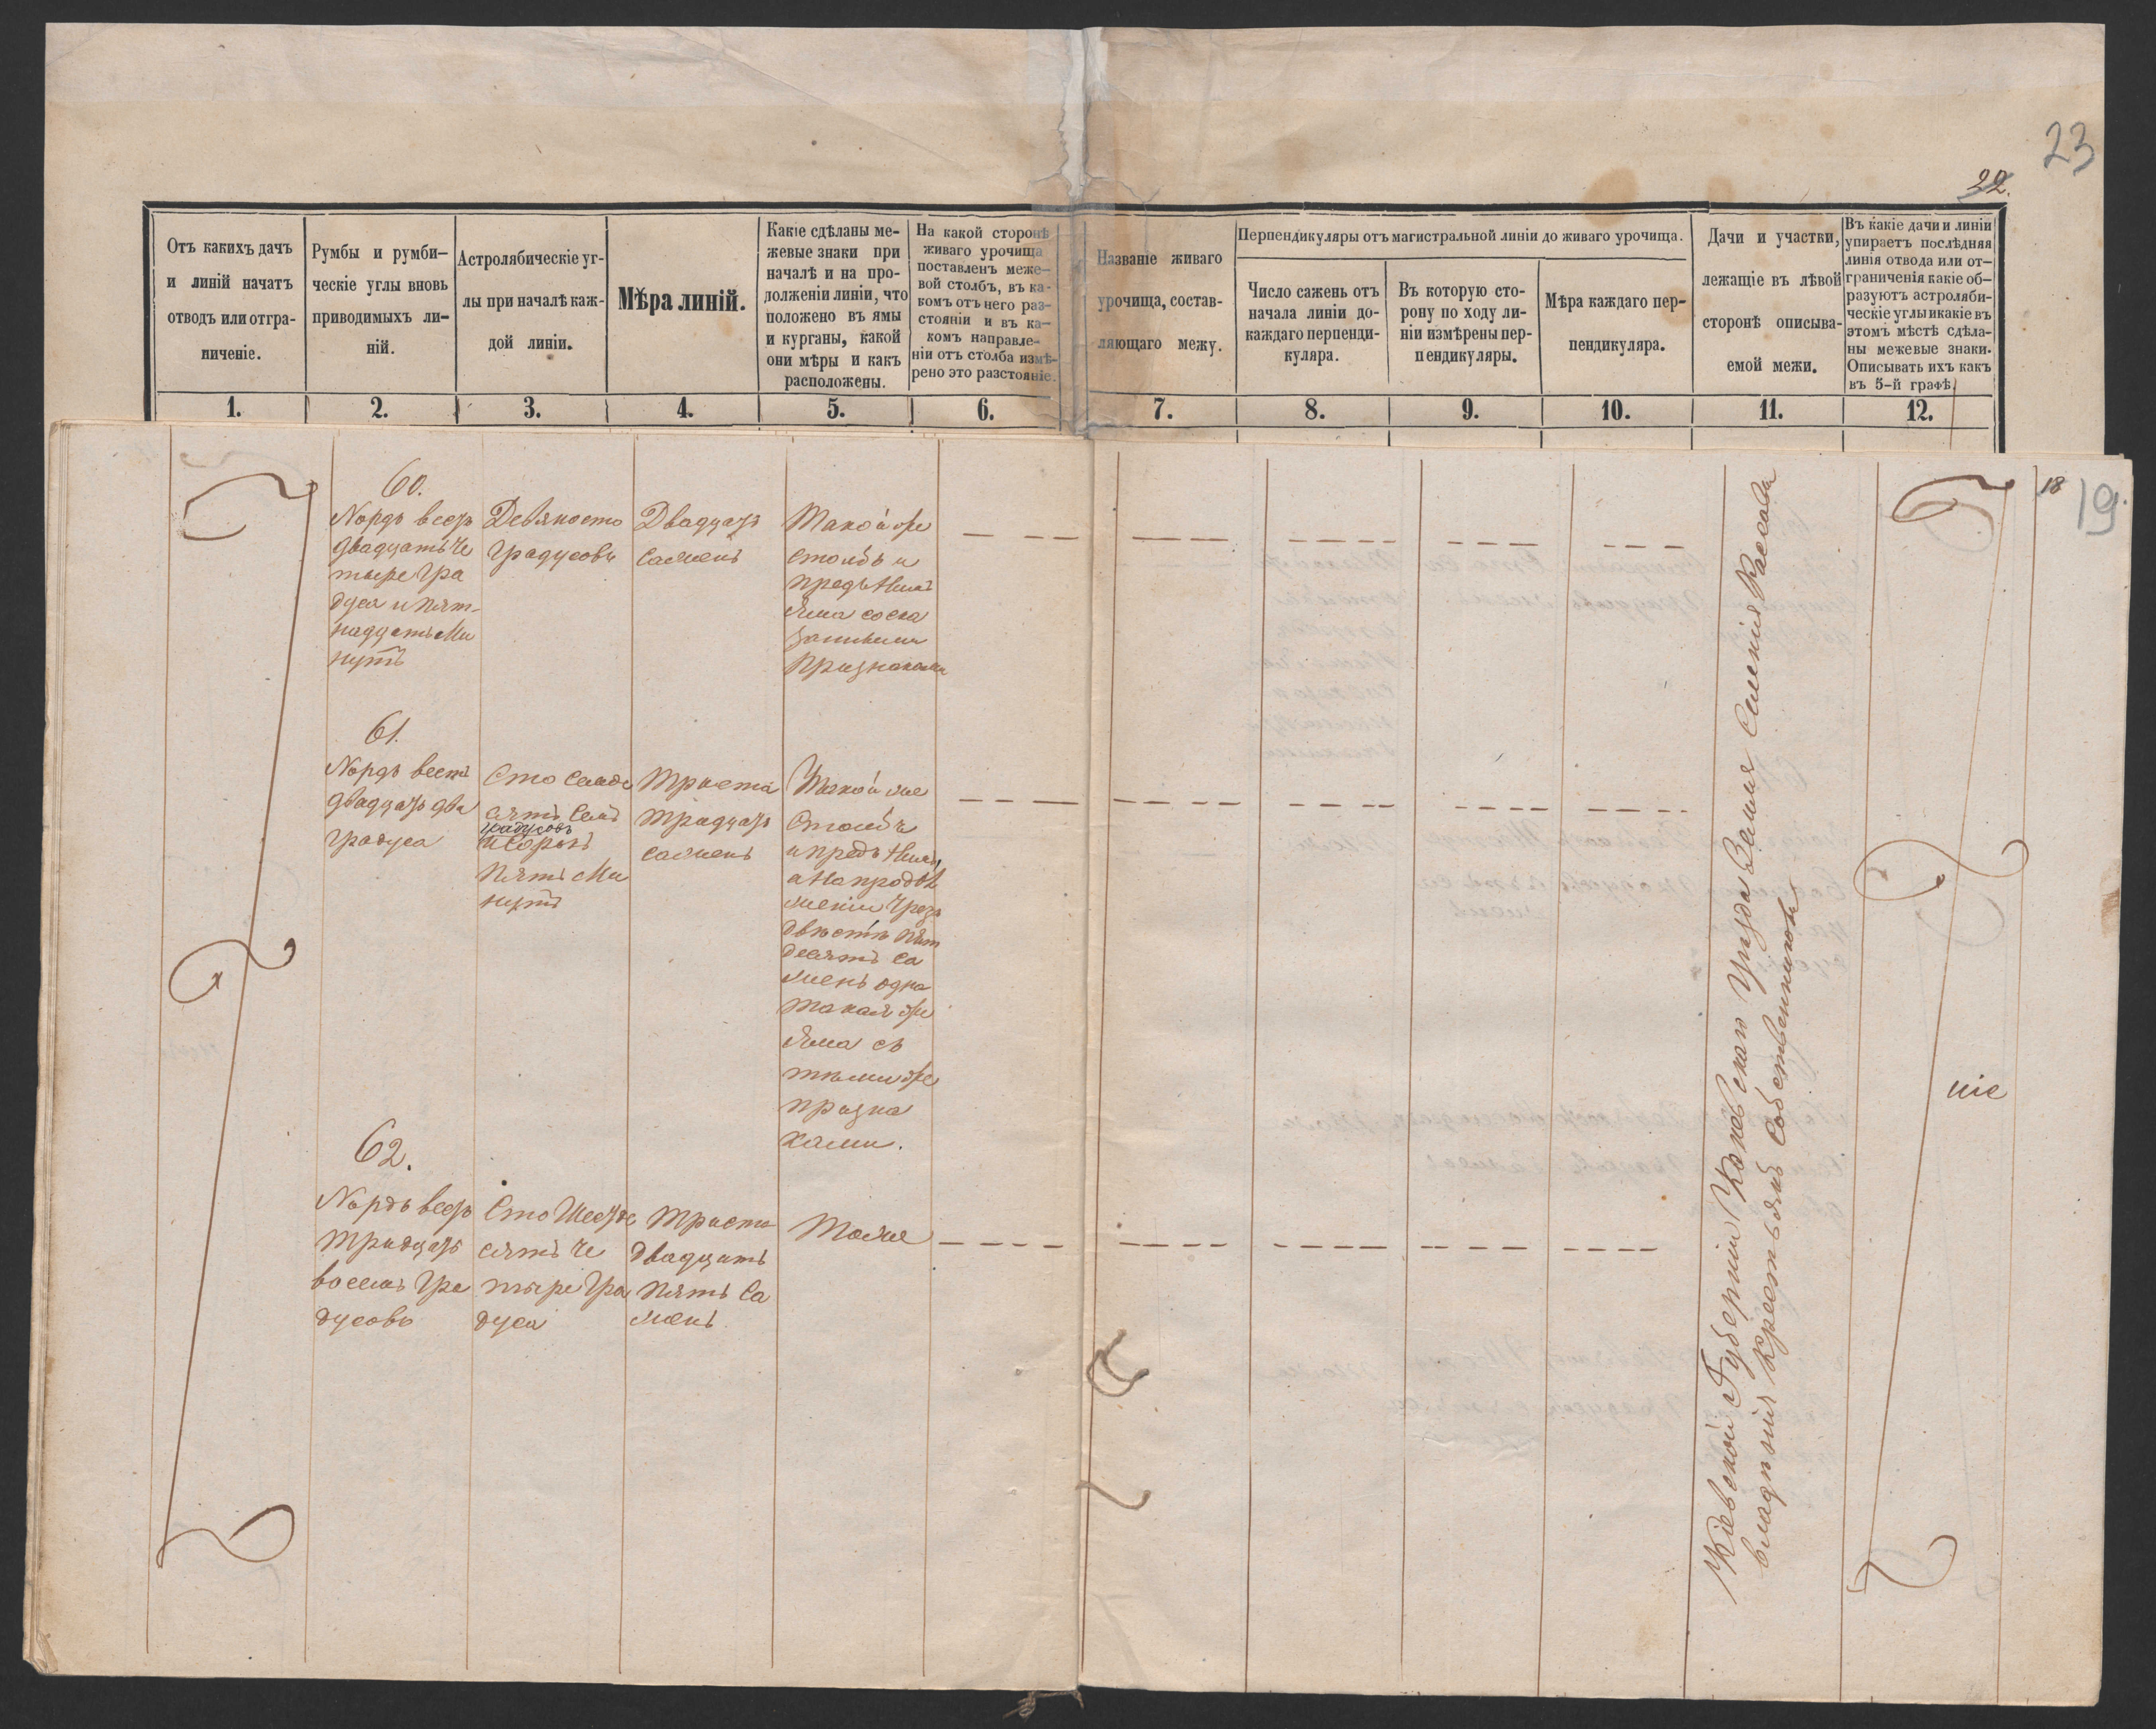 23
22.
Отъ какихъ дачъ
и линій начатъ
отводъ или отгра-
ниченіе.
Румбы и румби-
ческіе углы вновь
приводимыхъ ли-
ній.
Астролябическіе уг-
лы при началѣ каж-
дой линіи.
Мѣра линій.
Какіе сдѣланы ме-
жевые знаки при
началѣ и на про-
долженіи линіи, что
положено въ ямы
и курганы, какой
они мѣры и какъ
расположены.
На какой сторонѣ
живаго урочища
поставленъ меже-
вой столбъ, въ ка-
комъ отъ него раз-
стояніи и въ ка-
комъ направле-
ніи отъ столба измѣ-
рено это разстояніе.
Названіе живаго
урочища, состав-
ляющаго межу.
Перпендикуляры отъ магистральной линіи до живаго урочища.
Число сажень отъ
начала линіи до-
каждаго перпенди-
куляра.
Въ которую сто-
рону по ходу ли-
ніи измѣрены пер-
пендикуляры.
Мѣра каждаго пер-
пендикуляра.
Дачи и участки,
лежащіе въ лѣвой
сторонѣ описыва-
емой межи.
Въ какіе дачи и линіи
упираетъ послѣдняя
линія отвода или от-
граниченія какіе об-
разуютъ астроляби-
ческіе углы и какіе въ
этомъ мѣстѣ сдѣла-
ны межевые знаки.
Описывать ихъ какъ
въ 5-й графѣ.
1. 2. 3. 4. 5. 6. 7. 8. 9. 10. 11. 12.
18
19.
60.
Нордъ вестъ
двадцать че
тыре гра
дуса и пят-
надцать ми
нутъ
Девяносто
градусовъ
Двадцать
сажень
Такой же
столбъ и
предъ нимъ
яма со ска
занными
признаками
61.
Нордъ вестъ
двадцать два
градуса
Сто семде
сятъ семь
градусовъ
и сорокъ
пять ми
нутъ
Триста
тридцать
сажень
Такой же
столбъ
и предъ нимъ,
а на продол
женіи чрезъ
двѣстѣ пят
десятъ са
жень одна
такая же
яма съ
тѣми же
призна
ками.
62.
Нордъ вестъ
тридцать
восемь гра
дусовъ
Сто шестьде
сятъ че
тыре гра
дуса
Триста
двадцать
пять са
жень
Тоже
Кіевской Губерніи Каневскаго Уѣзда Земля Селенія
владѣнія крестьянъ собственниковъ
ніе